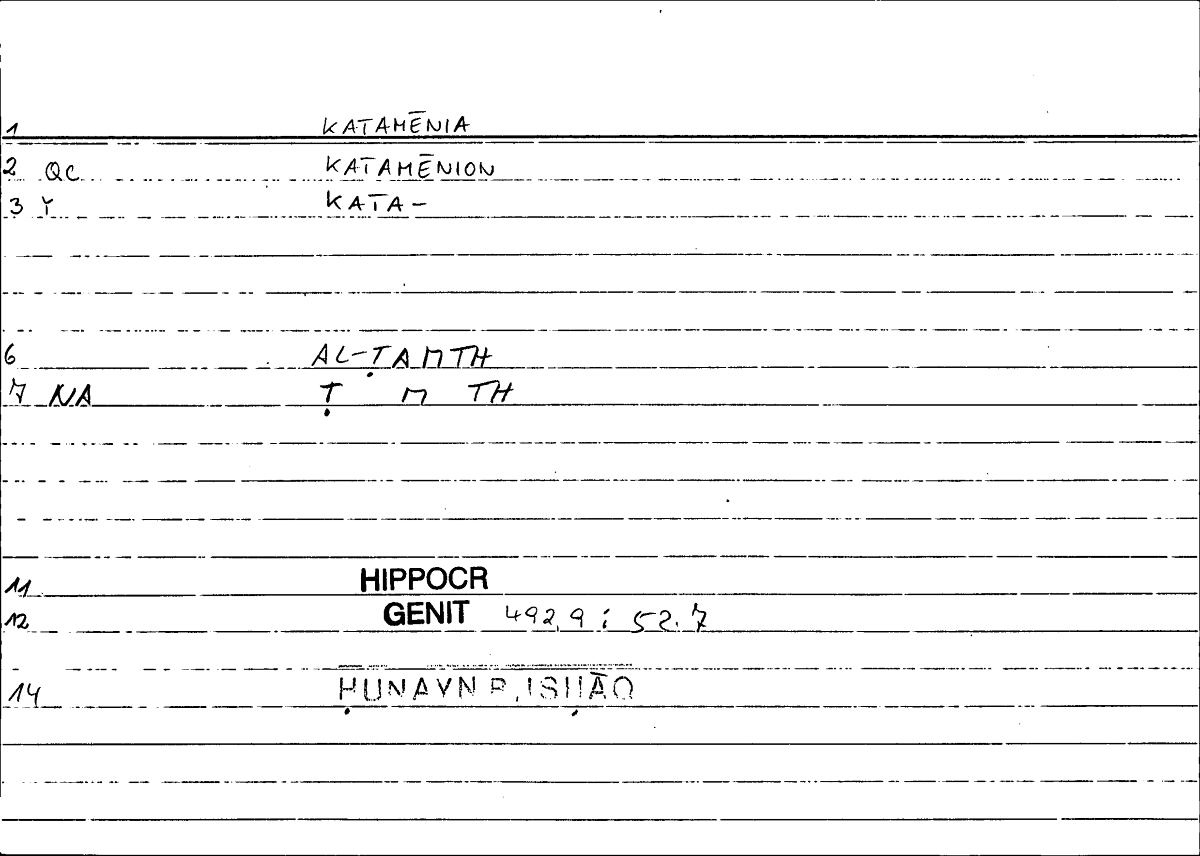 1 KATAMĒNIA
2 QC KATAMĒNION
3 Y KATA-
6 AL-ṬAMTH
7 NA Ṭ M TH
11 HIPPOCR
12 GENIT 492,9 ; 52.7
14 ḤUNAYN B. ISḤĀQ